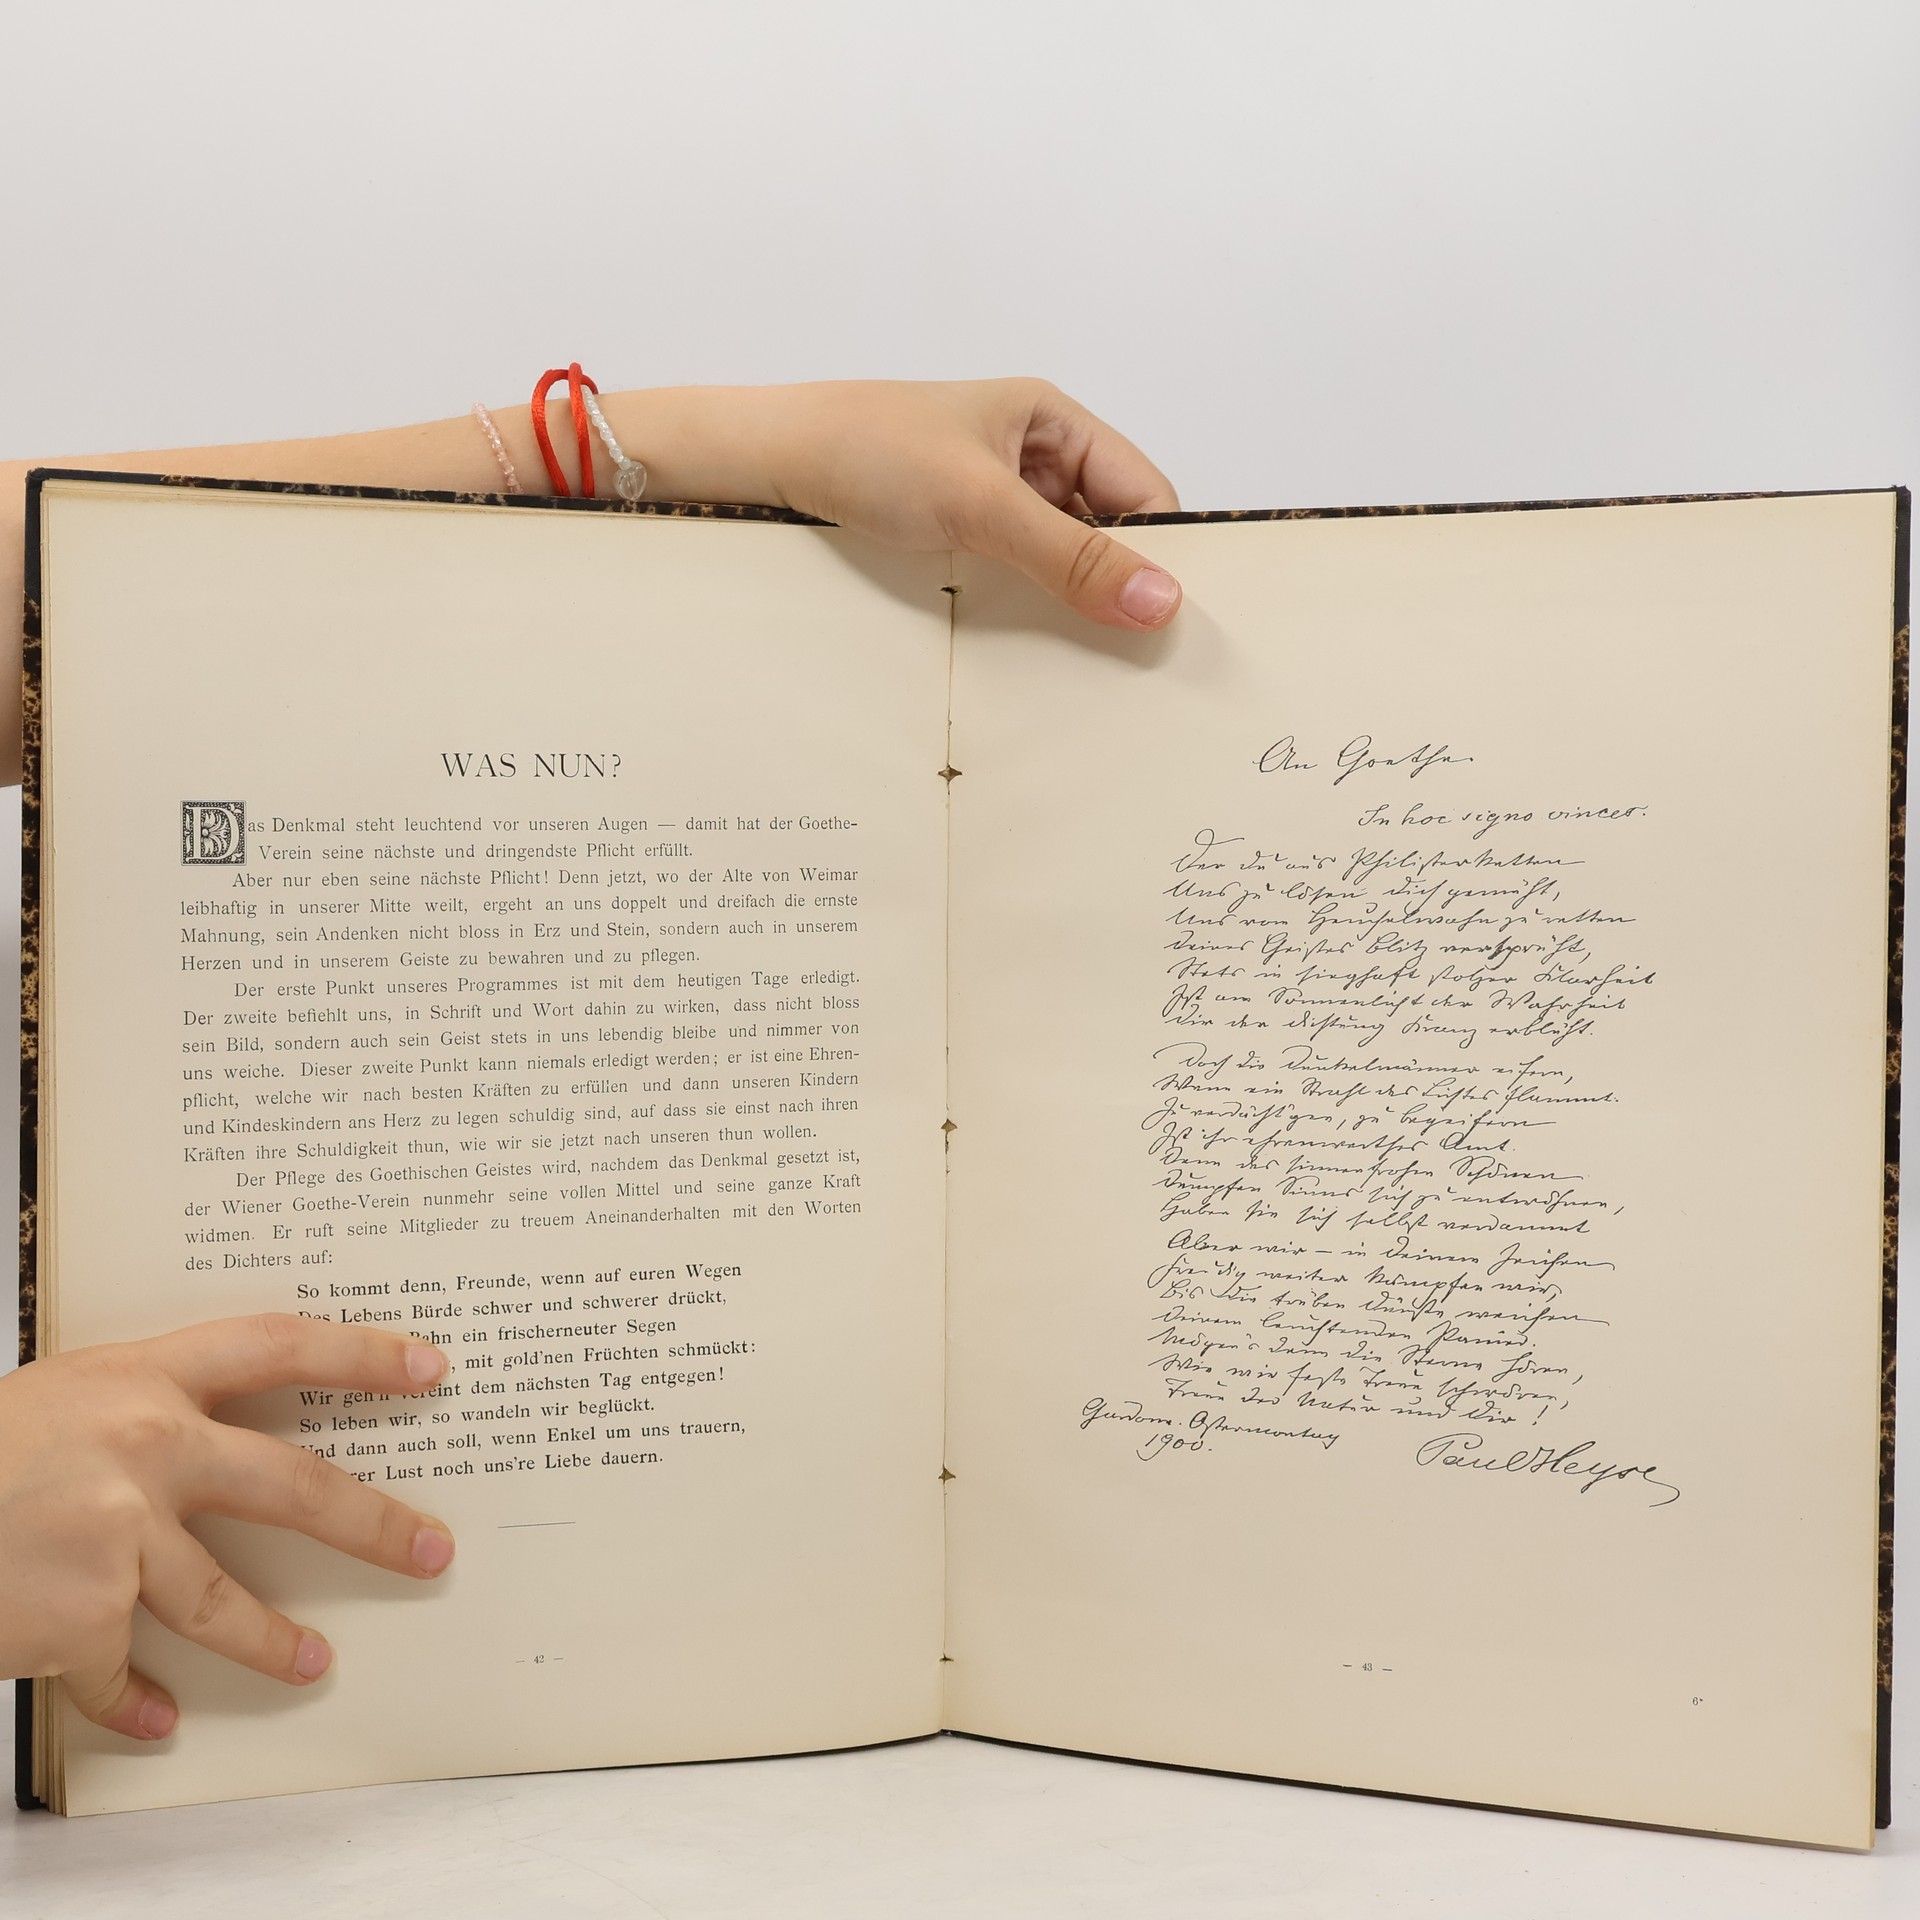 WAS NUN?
Das Denkmal steht leuchtend vor unseren Augen — damit hat der Goethe-
Verein seine nächste und dringendste Pflicht erfüllt.
Aber nur eben seine nächste Pflicht! Denn jetzt, wo der Alte von Weimar
leibhaftig in unserer Mitte weilt, ergeht an uns doppelt und dreifach die ernste
Mahnung, sein Andenken nicht bloss in Erz und Stein, sondern auch in unserem
Herzen und in unserem Geiste zu bewahren und zu pflegen.
Der erste Punkt unseres Programmes ist mit dem heutigen Tage erledigt.
Der zweite befiehlt uns, in Schrift und Wort dahin zu wirken, dass nicht bloss
sein Bild, sondern auch sein Geist stets in uns lebendig bleibe und nimmer von
uns weiche. Dieser zweite Punkt kann niemals erledigt werden; er ist eine Ehren-
pflicht, welche wir nach besten Kräften zu erfüllen und dann unseren Kindern
und Kindeskindern ans Herz zu legen schuldig sind, auf dass sie einst nach ihren
Kräften ihre Schuldigkeit thun, wie wir sie jetzt nach unseren thun wollen.
Der Pflege des Goethischen Geistes wird, nachdem das Denkmal gesetzt ist,
der Wiener Goethe-Verein nunmehr seine vollen Mittel und seine ganze Kraft
widmen. Er ruft seine Mitglieder zu treuem Aneinanderhalten mit den Worten
des Dichters auf:
So kommt denn, Freunde, wenn auf euren Wegen
Des Lebens Bürde schwer und schwerer drückt,
Bahn ein frischerneuter Segen
mit gold'nen Früchten schmückt:
Wir geh'n vereint dem nächsten Tag entgegen!
So leben wir, so wandeln wir beglückt.
Und dann auch soll, wenn Enkel um uns trauern,
Lust noch uns're Liebe dauern.
— 42 —
An Goethe.
In hoc signo vinces.
Der du aus Philisterketten
Uns zu lösen dich gemüht,
Uns vom Heuchelwahn zu retten
Deines Geistes Blitz versprüht,
Stets in sieghaft stolzer Klarheit
Ist am Sonnenlicht der Wahrheit
Dir der Dichtung Kranz erblüht.
Doch die Dunkelmänner eifern,
Wenn ein Strahl des Lichtes flammt.
Zu verdächt'gen, zu begeifern
Ist ihr ehrenwerthes Amt.
Denn des sinnenfrohen Schönen
Dumpfen Sinns sich zu entwöhnen,
Haben sie sich selbst verdammt
Aber wir — in deinem Zeichen
Freudig weiter kämpfen wir,
Bis die trüben Dünste weichen
Deinem leuchtenden Panier.
Mögen's denn die Sterne hören,
Wie wir feste Treue schwören,
Treue der Natur und dir!
Gardone. Ostermontag
1900.
Paul Heyse
— 43 —
6*